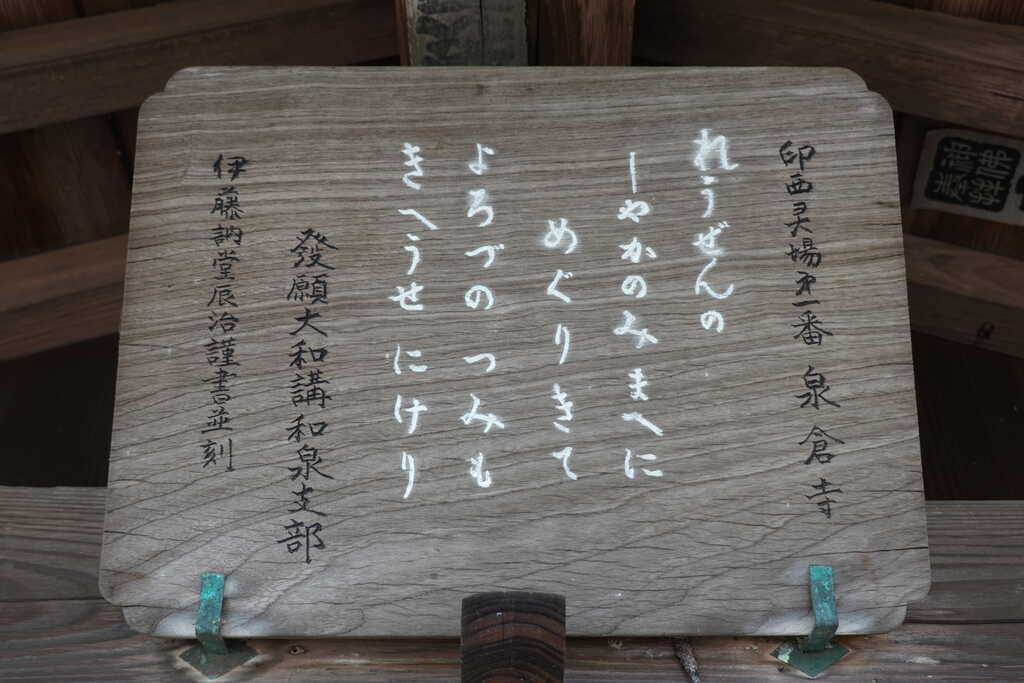 印西灵場第一番 泉倉寺
れうぜんの
しやかのみまへに
めぐりきて
よろづのつみも
きへうせにけり
發願大和講和泉支部
伊藤訥堂辰治謹書並刻